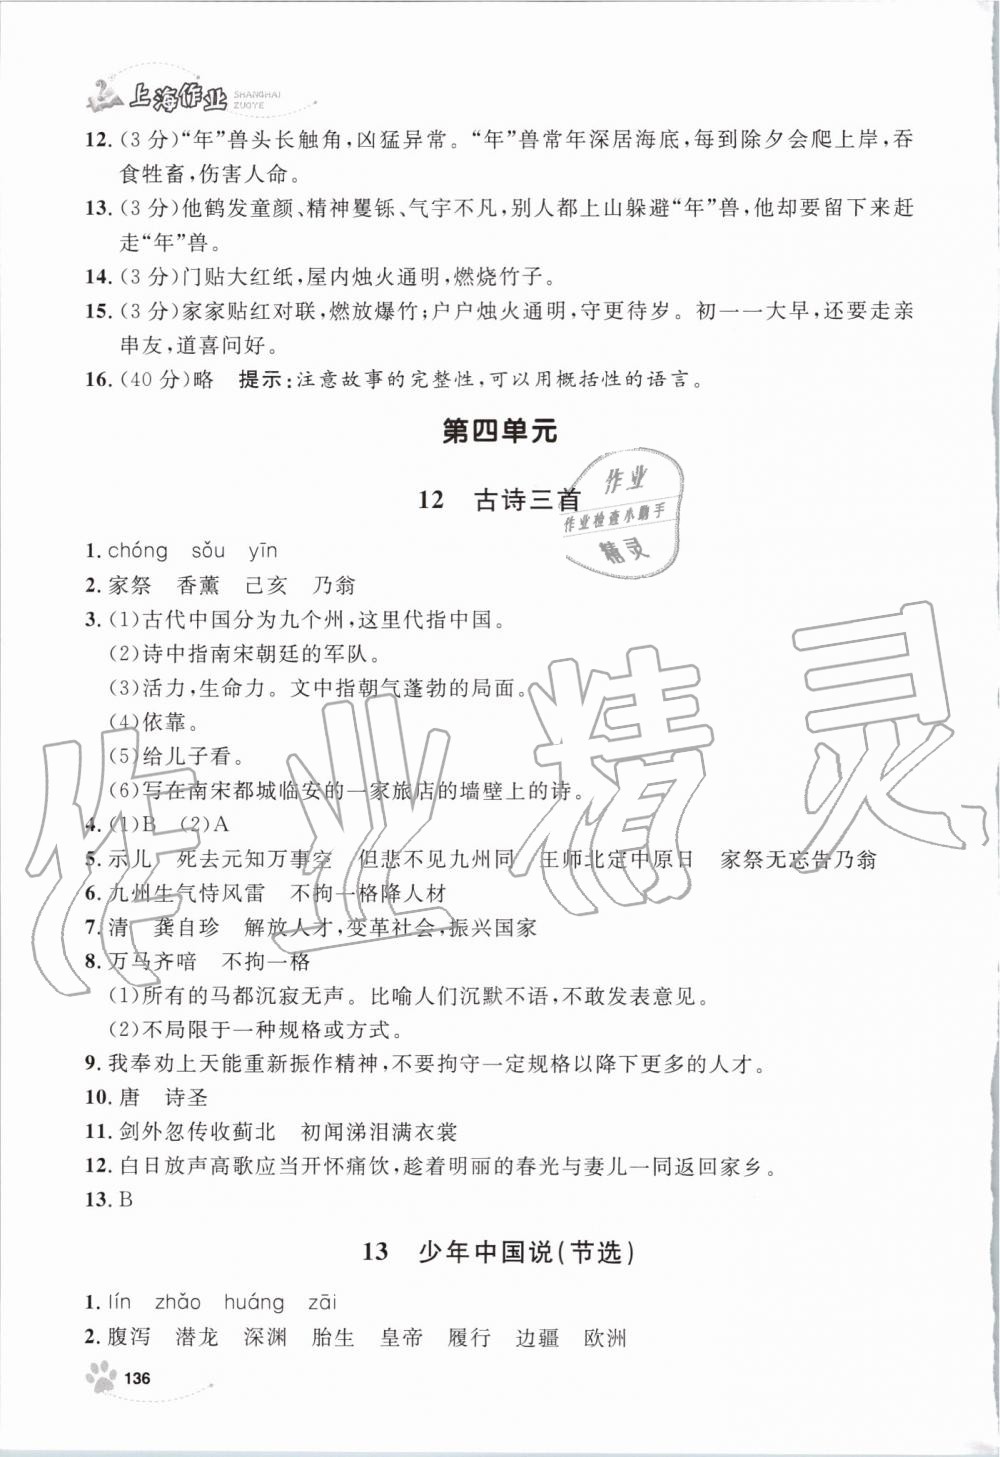 上海作业
SHANGHAI
ZUOYE
12.(3分)“年”兽头长触角,凶猛异常。“年”兽常年深居海底,每到除夕会爬上岸,吞
食牲畜,伤害人命。
13.(3分)他鹤发童颜、精神矍铄、气宇不凡,别人都上山躲避“年”兽,他却要留下来赶
走“年”兽。
14.(3分)门贴大红纸,屋内烛火通明,燃烧竹子。
15.(3分)家家贴红对联,燃放爆竹;户户烛火通明,守更待岁。初一一大早,还要走亲
串友,道喜问好。
16.(40分)略 提示:注意故事的完整性,可以用概括性的语言。
第四单元
12 古诗三首
作业
作业检查小助手
精灵
1. chóng sǒu yīn
2. 家祭 香薰 己亥 乃翁
3. (1)古代中国分为九个州,这里代指中国。
(2)诗中指南宋朝廷的军队。
(3)活力,生命力。文中指朝气蓬勃的局面。
(4)依靠。
(5)给儿子看。
(6)写在南宋都城临安的一家旅店的墙壁上的诗。
4. (1)B (2)A
5. 示儿 死去元知万事空 但悲不见九州同 王师北定中原日 家祭无忘告乃翁
6. 九州生气恃风雷 不拘一格降人材
7. 清 龚自珍 解放人才,变革社会,振兴国家
8. 万马齐喑 不拘一格
(1)所有的马都沉寂无声。比喻人们沉默不语,不敢发表意见。
(2)不局限于一种规格或方式。
9. 我奉劝上天能重新振作精神,不要拘守一定规格以降下更多的人才。
10. 唐 诗圣
11. 剑外忽传收蓟北 初闻涕泪满衣裳
12. 白日放声高歌应当开怀痛饮,趁着明丽的春光与妻儿一同返回家乡。
13. B
作业精灵
13 少年中国说(节选)
1. lín zhǎo huáng zāi
2. 腹泻 潜龙 深渊 胎生 皇帝 履行 边疆 欧洲
136